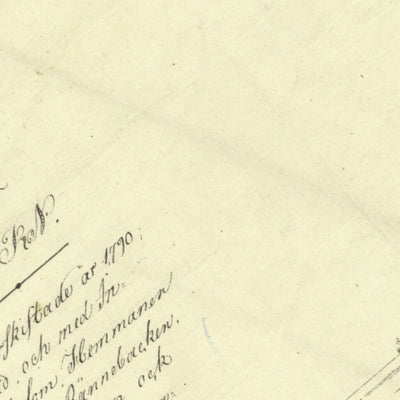 KN.
skiftade år 1790,
d. och med In-
som Hemmanen
Rännebacken.
och